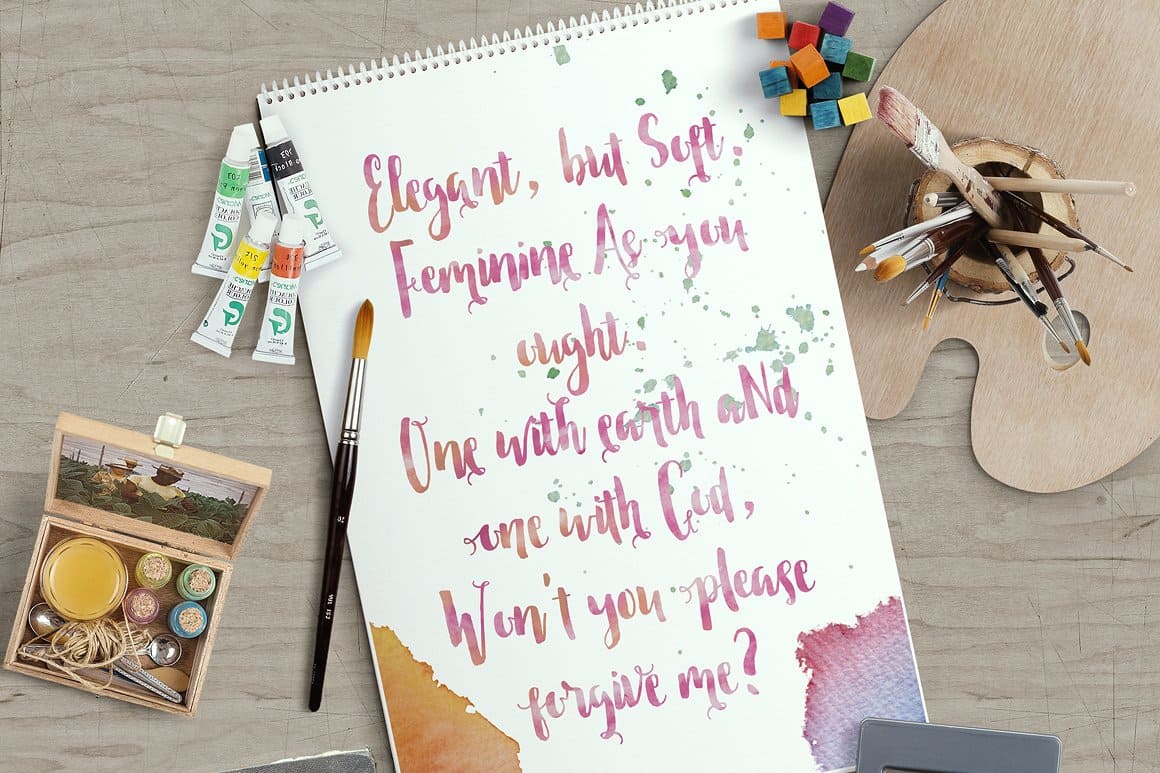 Elegant, but Soft.
Feminine As you
ought.
One with earth aNd
one with God,
Won't you please
forgive me?